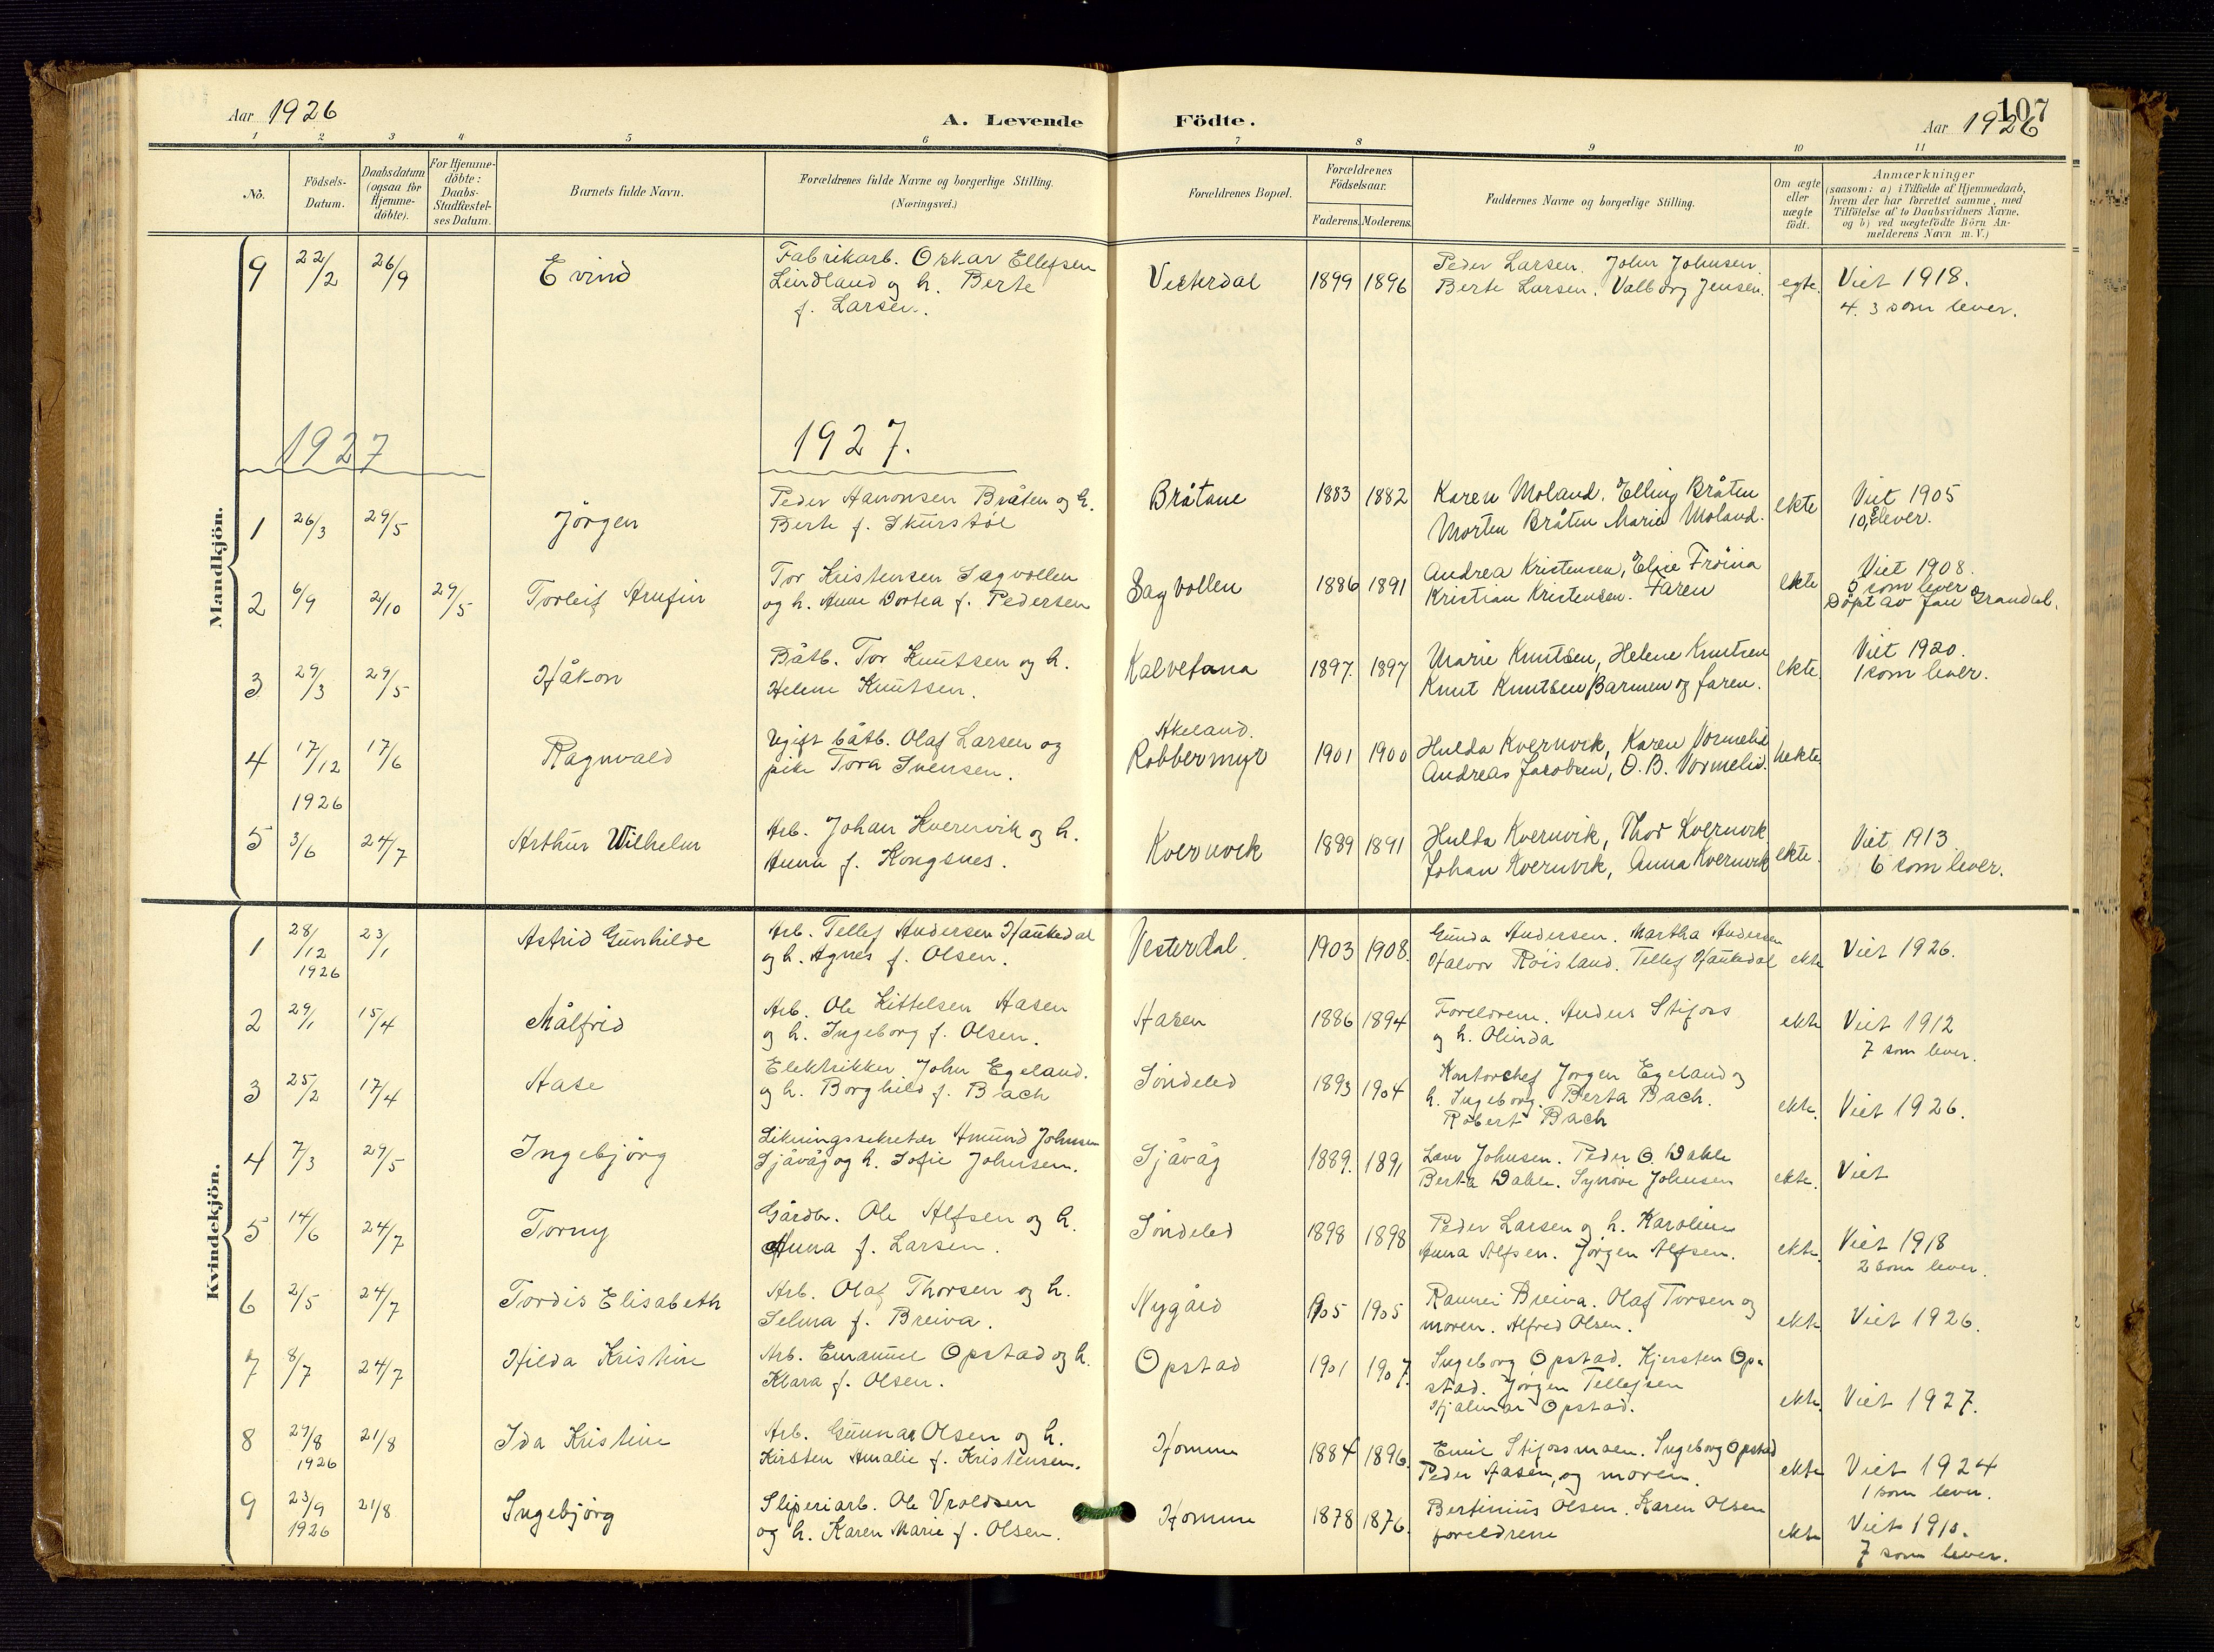 Aar 1926
A. Levende Födte.
107
Aar 1926
1 2 3 4 5 6 7 8 9 10 11
No.
Födsels-
Datum.
Daabsdatum
(ogsaa for
Hjemme-
döbte).
For Hjemme-
döbte:
Daabs-
Stadfæstel-
ses Datum.
Barnets fulde Navn.
Forældrenes fulde Navne og borgerlige Stilling.
(Næringsvei.)
Forældrenes Bopæl.
Forældrenes
Födselsaar.
Faderens. Moderens.
Faddernes Navne og borgerlige Stilling.
Om ægte
eller
uægte
födt.
Anmærkninger
(saasom: a) i Tilfælde af Hjemmedaab,
hvem der har forrettet samme, med
Tilföielse af to Daabsvidners Navne,
og b) ved uægtefödte Börn An-
melderens Navn m. V.)
Mandkjön.
9 22/2 26/9 Evind
Fabrikarb. Oskar Ellefsen
Lindland og h. Berte
f. Larsen.
Vesterdal 1899 1896
Peder Larsen. John Johnsen.
Berte Larsen. Valborg Jensen.
egte. Viet 1918.
4. 3 som lever.
1927 1927.
1 26/3 29/5 Jörgen
Peder Aanonsen Bråten og h.
Berte f. Skurstöl
Bråtane 1883 1882
Karen Moland. Elling Bråten
Morten Bråten Marie Moland.
ekte Viet 1905
10, 8 lever.
2 6/9 2/10 29/5 Torleif Arnfin
Tor Kristensen Sagvollen
og h. Anne Dortea f. Pedersen
Sagvollen 1886 1891
Andrea Kristensen, Elise Fröina
Kristian Kristensen. Faren
ekte Viet 1908.
5 som lever
Döpt av Jan Grandal.
3 29/3 29/5 Håkon
Båtb. Tor Knutsen og h.
Helene Knutsen.
Kalvetana 1897. 1897
Marie Knutsen, Helene Knutsen
Knut Knutsen Barmen og faren.
ekte Viet 1920.
1 som lever.
4 17/12 17/6 Ragnvald
1926
Ugift båtb. Olaf Larsen og
pike Tora Svensen.
Akeland.
Robbermyr 1901 1900
Hulda Kvernvik, Karen Vormelid
Andreas Jacobsen, O. B. Vormelid.
uekte
5 3/6 24/7 Arthur Wilhelm
Arb. Johan Kvernvik og h.
Anna f. Kongsnes.
Kvernvik 1889 1891
Hulda Kvernvik, Thor Kvernvik
Johan Kvernvik, Anna Kvernvik
ekte. Viet 1913.
6 som lever.
Kvindekjön.
1 28/12 23/1 Astrid Gunhilde
1926
Arb. Tellef Andersen Haukedal
og h. Agnes f. Olsen.
Vesterdal. 1903 1908.
Gunda Andersen. Martha Andersen
Halvor Röisland. Tellef Haukedal
ekte Viet 1926.
2 29/1 15/4 Målfrid
Arb. Ole Kittelsen Aasen
og h. Ingeborg f. Olsen.
Aasen 1886 1894
Foreldrene. Anders Stifoss
og h. Olinda
ekte Viet 1912
7 som lever.
3 25/2 17/4 Aase
Elektrikker John Egeland.
og h. Borghild f. Bach
Söndeled 1893 1904
Kontorchef Jörgen Egeland og
h. Ingeborg. Berta Bach.
Robert Bach
ekte. Viet 1926.
4 7/3 29/5 Ingebjörg
Likningssekretær Amund Johnsen
Sjåvåg og h. Sofie Johnsen.
Sjåvåg 1889. 1891
Lars Johnsen. Peder O. Dahle
Berta Dahle. Synöve Johnsen
ekte. Viet
5 14/6 24/7 Torny
Gårdb. Ole Alfsen og h.
Anna f. Larsen.
Söndeled 1898 1898
Peder Larsen og h. Karoline
Anna Alfsen. Jörgen Alfsen.
ekte. Viet 1918
2 som lever.
6 2/5 24/7 Tordis Elisabeth
Arb. Olaf Thorsen og h.
Selma f. Breiva.
Nygård 1905 1905
Rannei Breiva. Olaf Torsen og
moren. Alfred Olsen.
ekte Viet 1926.
7 8/7 24/7 Hilda Kristine
Arb. Emanuel Opstad og h.
Klara f. Olsen.
Opstad 1901 1907.
Ingeborg Opstad. Kjersten Op-
stad. Jörgen Tellefsen
Hjalmar Opstad.
ekte. Viet 1927.
8 27/8 21/8 Ida Kristine
1926
Arb. Gunnar Olsen og h.
Kirsten Amalie f. Kristensen.
Homme 1884 1896.
Emil Stifossmoen. Ingeborg Opstad
Peder Aasen, og moren.
ekte Viet 1924
1 som lever.
9 23/9 21/8 Ingebjörg
1926
Sliperiarb. Ole Vroldsen
og h. Karen Marie f. Olsen.
Homme 1878 1876.
Bertinius Olsen. Karen Olsen
foreldrene
ekte Viet 1910.
7 som lever.